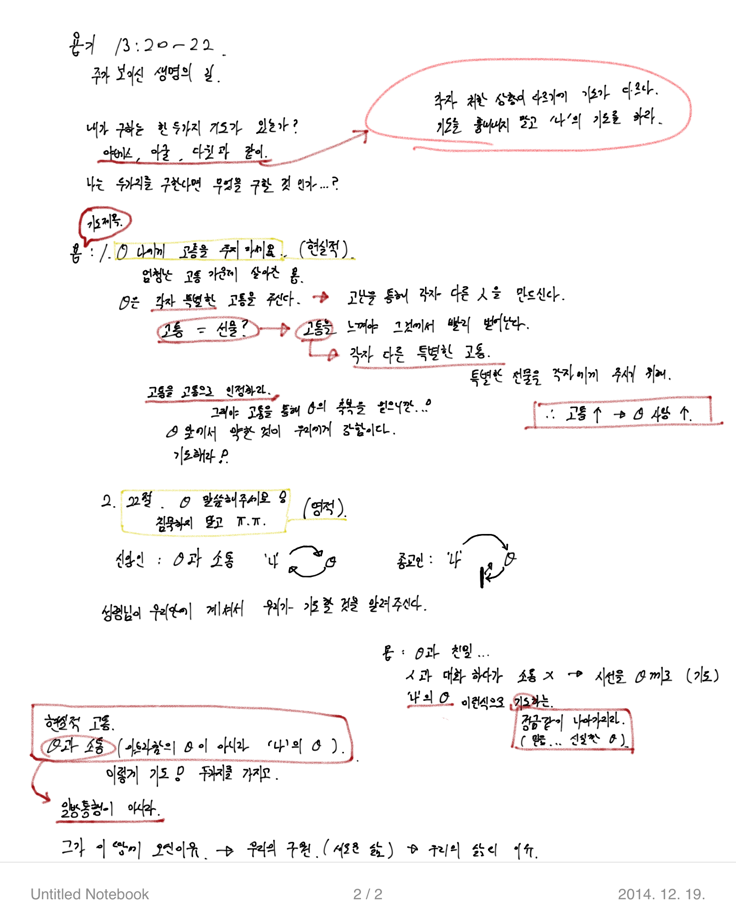 욥기 13:20-22.
주가 보이신 생명의 길.
각자 처한 상황이 다르기에 기도가 다르다.
기도를 흉내내지 말고 '나'의 기도를 하라.
내가 구하는 한 두가지 기도가 있는가?
야베스, 아굴, 다윗과 같이.
나는 두가지를 구한다면 무엇을 구할 것 인가...?
기도제목.
욥 : 1. θ 나에게 고통을 주지 마세요.. (현실적).
엄청난 고통 가운데 살아간 욥.
θ은 각자 특별한 고통을 주신다. → 고난을 통해 각자 다른 人을 만드신다.
고통 = 선물? → 고통을 느껴야 그것에서 빨리 벗어난다.
→ 각자 다른 특별한 고통.
특별한 선물을 각자에게 주시기 위해.
고통을 고통으로 인정하라.
그래야 고통을 통해 θ의 축복을 얻으니깐..!
∴ 고통↑ → θ 사랑↑.
θ 앞에서 약한 것이 우리에게 강함이다.
기도해라!
2. 22절. θ 말씀해주세요!
침묵하지 말고 ㅠ.ㅠ. (영적).
신앙인 : θ과 소통 '나' θ
종교인 : '나' θ
성령님이 우리안에 계셔서 우리가 기도할 것을 알려주신다.
욥 : θ과 친밀...
人과 대화 하다가 소통 X → 시선을 θ께로 (기도)
'나'의 θ 이런식으로 기도하는.
정금같이 나아가리라.
(믿음... 신실한 θ).
현실적 고통.
θ과 소통 (아브라함의 θ이 아니라 '나'의 θ).
이렇게 기도! 두가지를 가지고.
일방통행이 아니라.
그가 이 땅에 오신이유. → 우리의 구원. (새로운 삶) → 우리의 삶의 이유.
Untitled Notebook
2 / 2
2014. 12. 19.